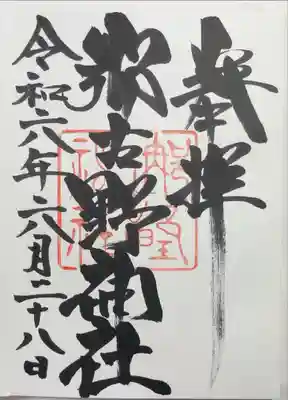 奉拝
那古野神社
令和六年六月二十八日